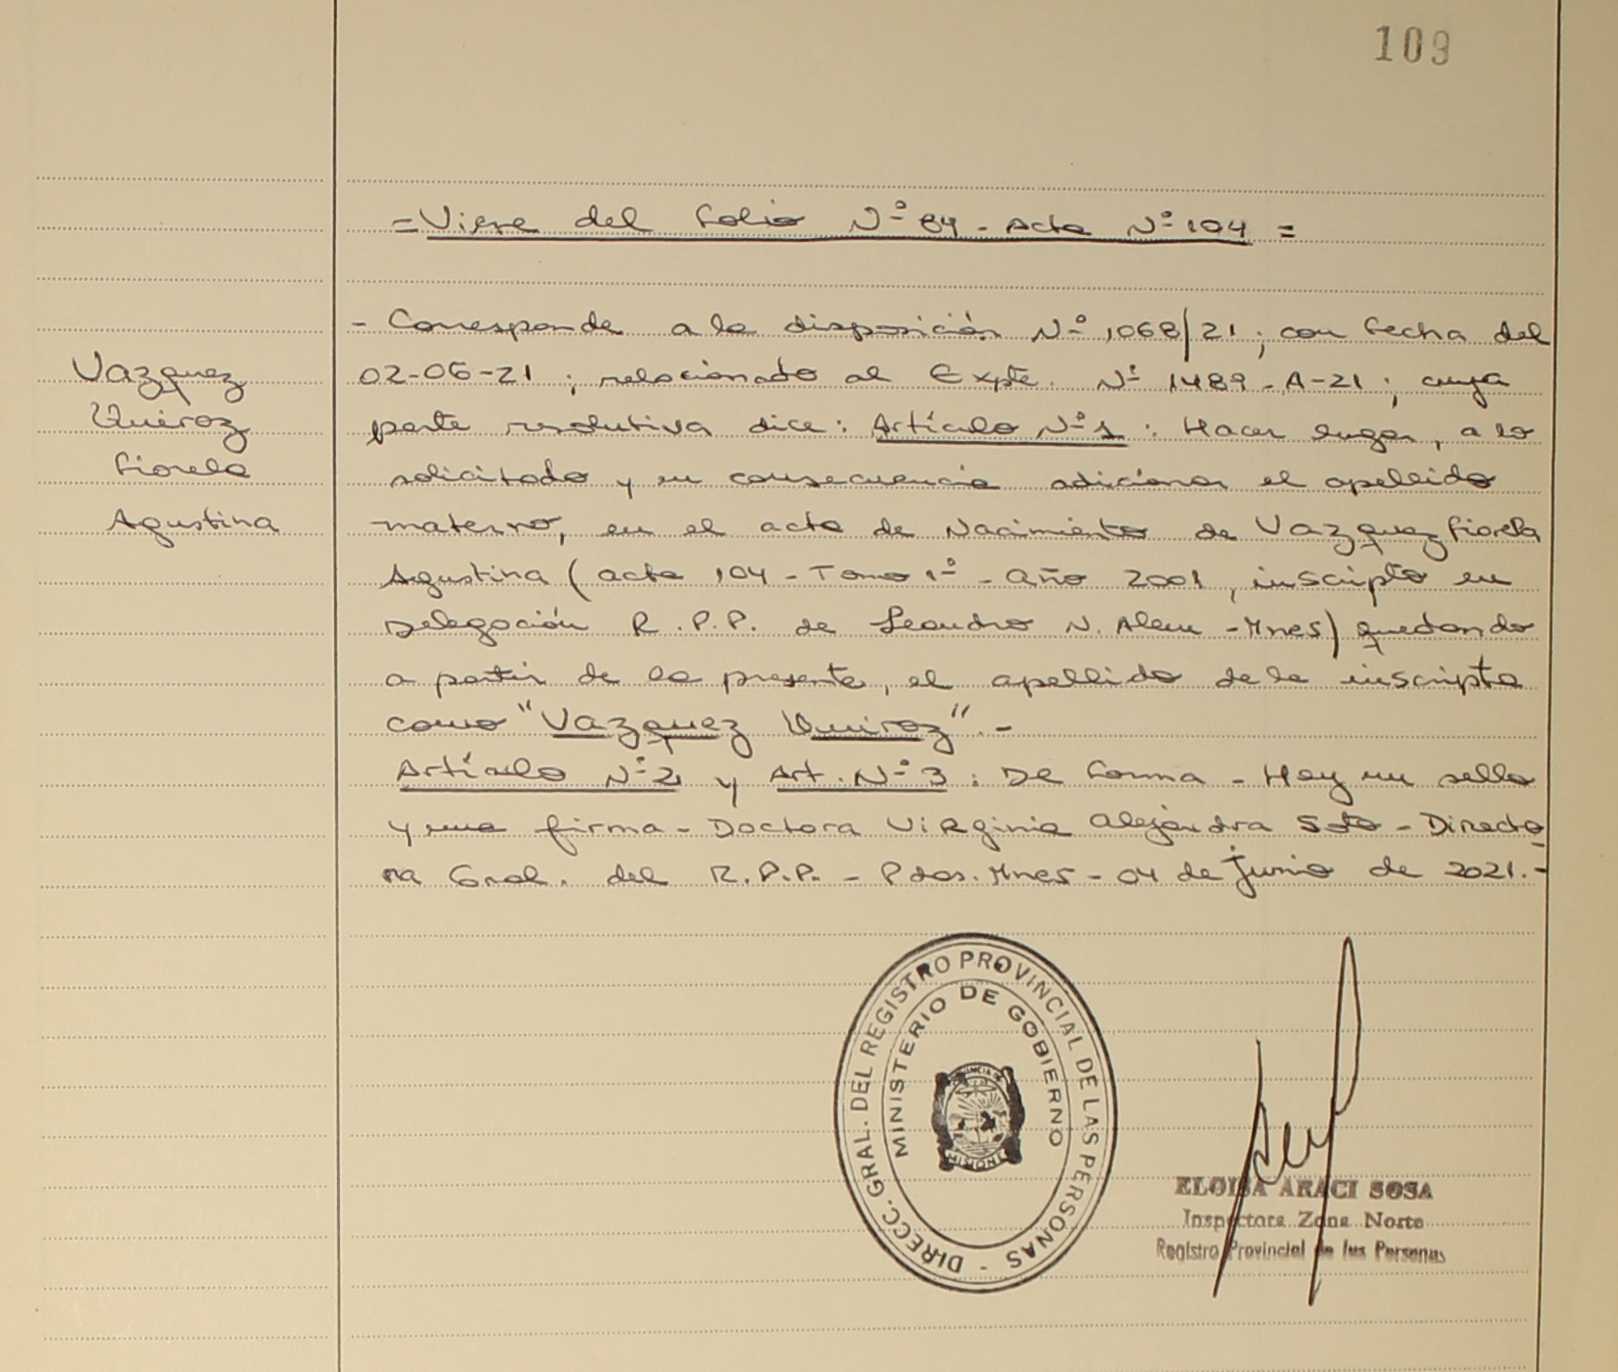 109
=Viene del folio Nº 84 - Acta Nº 104 =
Vazquez
Quiroz
Fiorela
Agustina
- Corresponde a la disposición Nº 1068/21; con fecha del
02-06-21; relacionado al Expte. Nº 1489-A-21; cuya
parte resolutiva dice: Artículo Nº 1: Hacer lugar, a lo
solicitado y en consecuencia adicionar el apellido
materno, en el acta de Nacimiento de Vazquez Fiorela
Agustina (acta 104 - Tomo 1º - Año 2001, inscripto en
Delegación R.P.P. de Leandro N. Alem - Mnes) quedando
a partir de la presente, el apellido de la inscripta
como "Vazquez Quiroz".-
Artículo Nº 2 y Art. Nº 3: De forma - Hay un sello
y una firma - Doctora Virginia Alejandra Soto - Directo
ra Gral. del R.P.P. - Pdas. Mnes - 04 de junio de 2021.-
DIRECC. GRAL. DEL REGISTRO PROVINCIAL DE LAS PERSONAS -
MINISTERIO DE GOBIERNO
PROVINCIA DE
MISIONES
ELOISA ARACI SOSA
Inspectora Zona Norte
Registro Provincial de las Personas